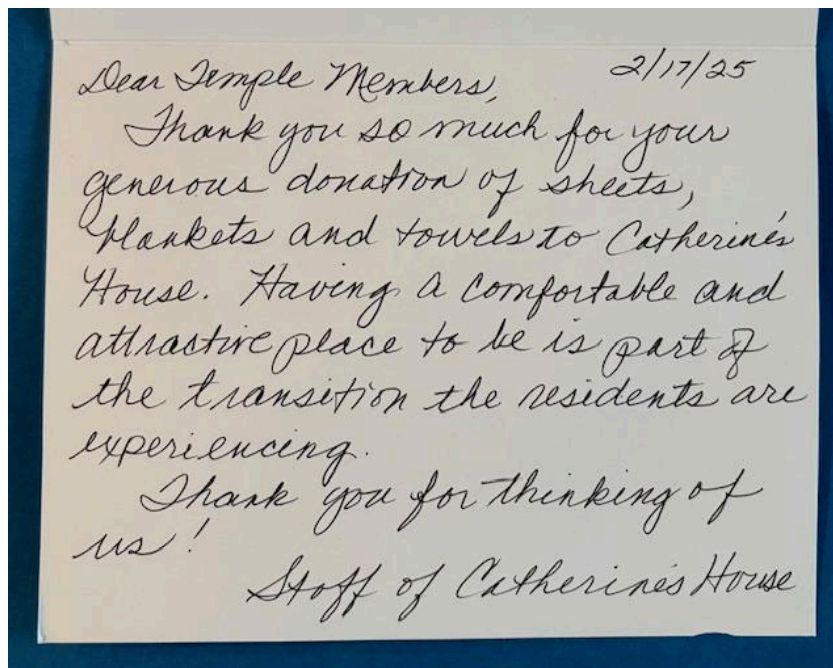 2/17/25
Dear Temple Members,
Thank you so much for your
generous donation of sheets,
blankets and towels to Catherine's
House. Having a comfortable and
attractive place to be is part of
the transition the residents are
experiencing.
Thank you for thinking of
us!
Staff of Catherine's House